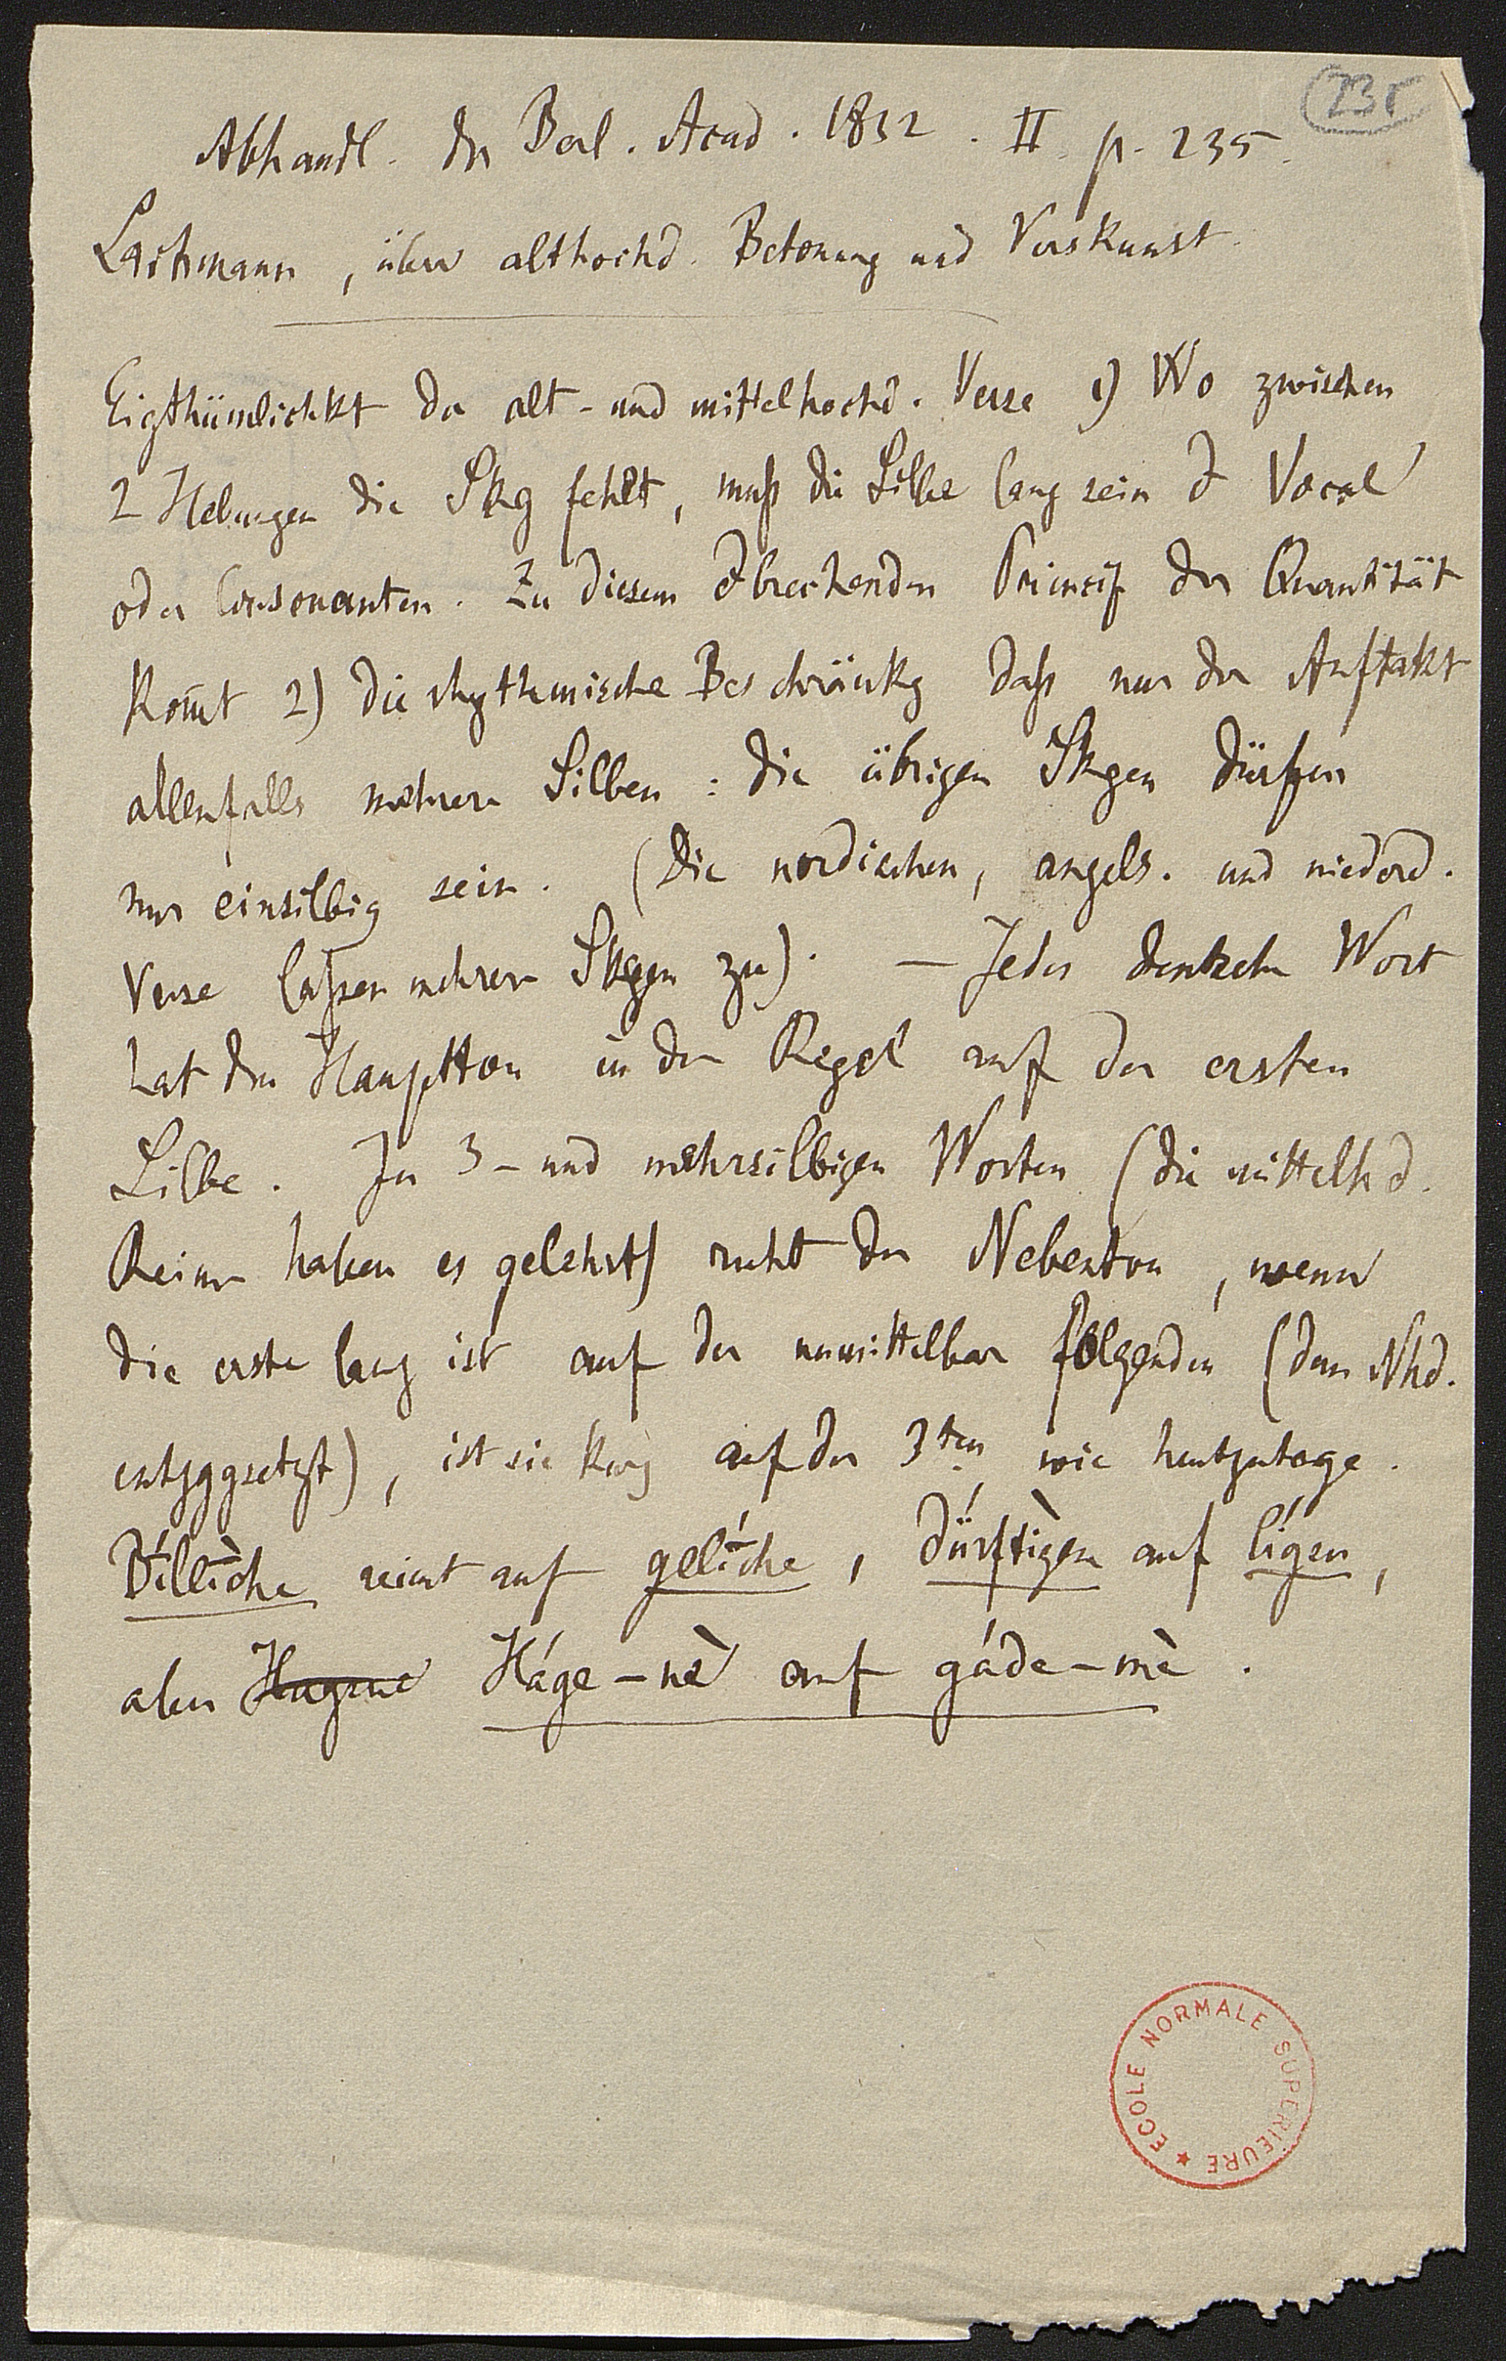 235
Abhandl. der Berl. Acad. 1832. II. p. 235.
Lachmann, über althochd. Betonung und Verskunst.
Eigthümlichkt der alt- und mittelhochd. Verse 1) Wo zwischen
2 Hebungen die Skg fehlt, muß die Silbe lang sein d Vocal
oder Consonanten. Zu diesem dbrechenden Princip der Quantität
kom̄t 2) die rhythmische Beschränkg daß nur der Auftakt
allenfalls mehrere Silben : die übrigen Skgen dürfen
nur einsilbig sein. (Die nordischen, angels. und niederd.
Verse laßen mehrere Skgen zu). — Jedes deutsche Wort
hat den Hauptton in der Regel auf der ersten
Silbe. In 3- und mehrsilbigen Worten (die mittelhd.
Reime haben es gelehrt) ruht der Nebenton, wenn
die erste lang ist auf der unmittelbar folgenden (dem Nhd.
entggsetzt), ist sie kurz auf der 3ten wie heutzutage.
Bı́llı̄̀che reimt auf gelı̄́che, dürftı̀gen auf lígen,
aber Hagene Háge-nè auf gáde-mè.
ECOLE NORMALE SUPERIEURE